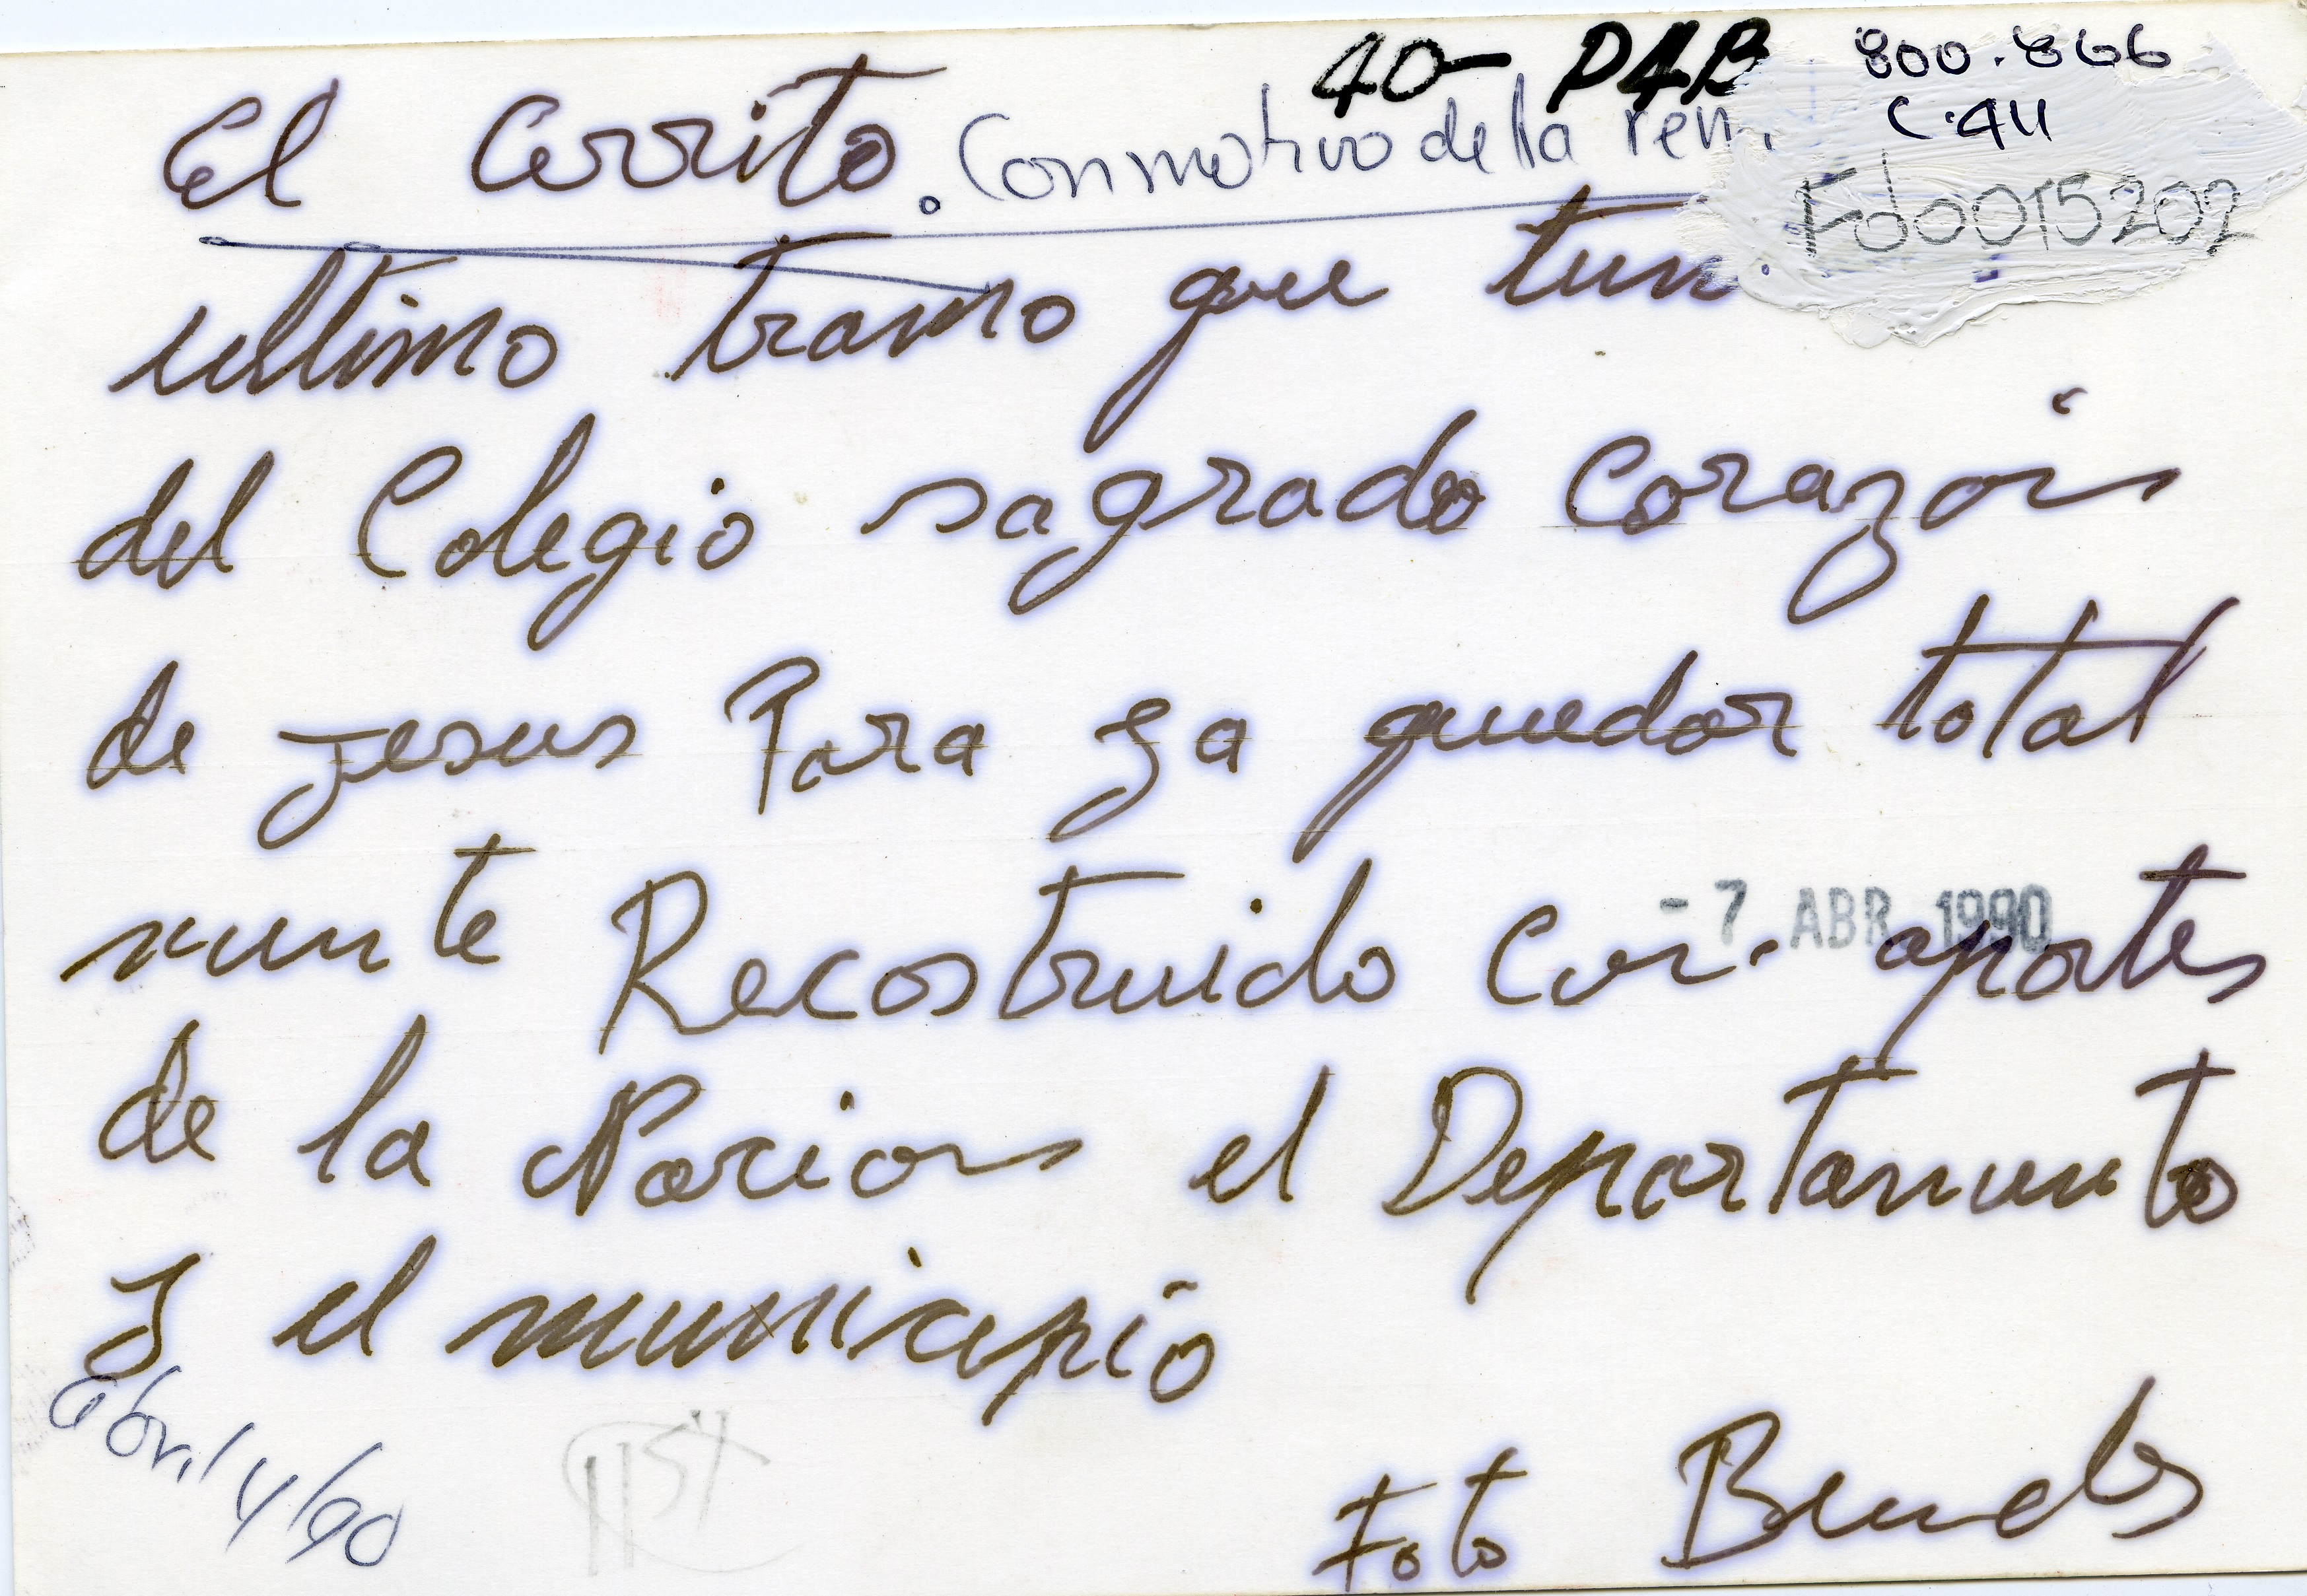 40- PAB 800.866
C.411
El Cerrito. Con motivo de la rem
Fdo0015202
ultimo tramo que
del Colegio sagrado Corazón
de jesus Para ya quedar total
mente Recostruido con aportes
- 7 ABR 1990
de la Nacion el Departamento
y el municipio
Abril 4/90
Foto